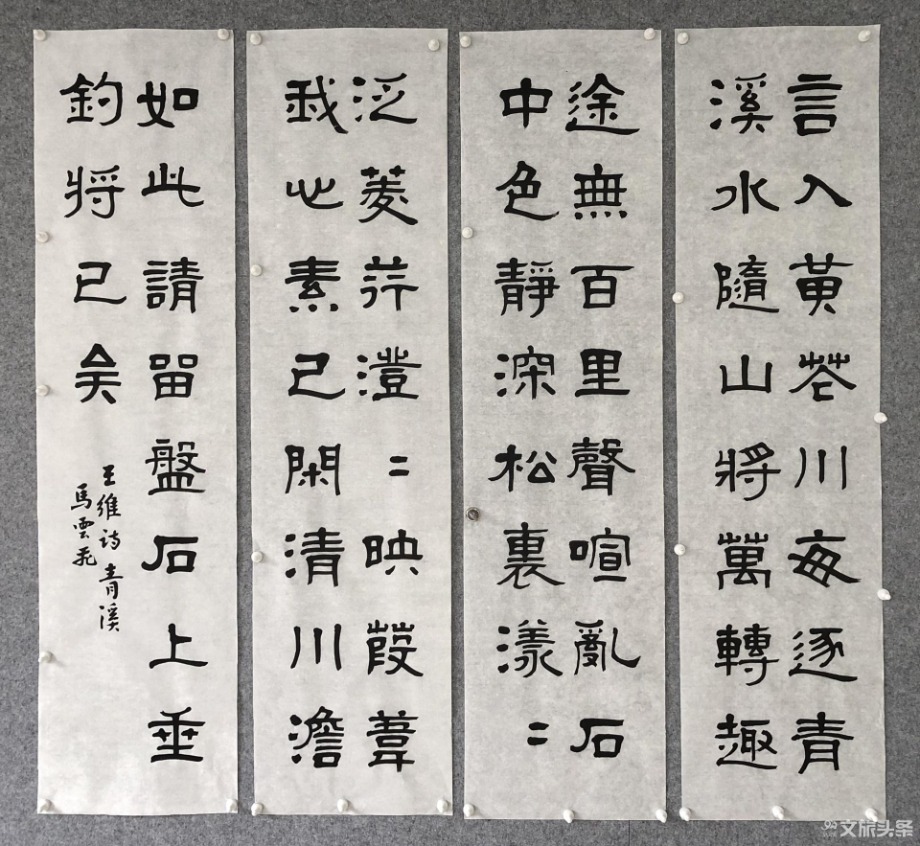 言入黄花川每逐青
溪水隨山將萬轉趣
途無百里聲喧亂石
中色靜深松裏漾〻
泛菱荇澄〻映葭葦
我心素已閑清川澹
如此請留盤石上垂
釣將已矣
王維诗青溪
馬雲飛
文旅头条